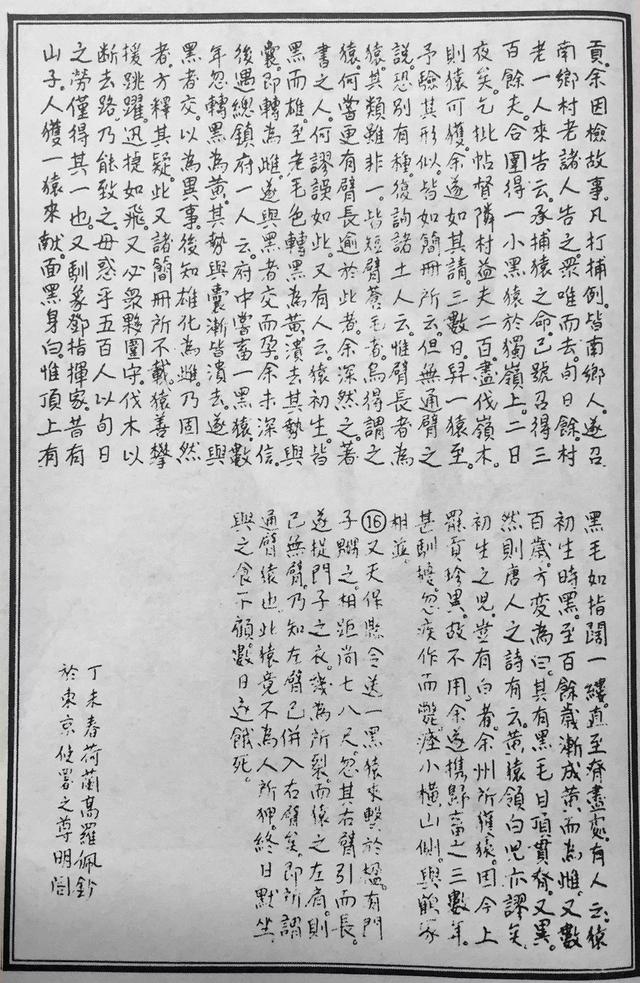 貢。余因檢故事。凡打捕例。皆南鄉人。遂召
南鄉村老諸人告之。眾唯而去。旬日餘。村
老一人來告云。承捕猿之命。已號召得三
百餘夫。合圍得一小黑猿於獨嶺上。二日
夜矣。乞批帖督隣村益夫二百。盡伐嶺木。
則猿可獲。余遂如其請。三數日。舁一猿至。
予驗其形似。皆如簡冊所云。但無通臂之
說。恐別有種。後詢諸土人云。惟臂長者為
猿。其類雖非一。皆短臂蒼毛者。烏得謂之
猿。何嘗更有臂長逾於此者。余深然之。著
書之人。何謬誤如此。又有人云。猿初生。皆
黑而雄。至老毛色轉黑為黃。潰去其勢與
囊。即轉為雌。遂與黑者交而孕。余未深信。
後遇總鎮府一人云。府中嘗畜一黑猿數
年。忽轉黑為黃。其勢與囊漸皆潰去。遂與
黑者交。以為異事。後知雄化為雌。乃固然
者。方釋其疑。此又諸簡冊所不載。猿善攀
援跳躍。迅捷如飛。又必眾夥圍守。伐木以
断去路。乃能致之。毋惑乎五百人以旬日
之勞。僅得其一也。又馴象鄧指揮家。昔有
山子。人獲一猿來献。面黑身白。惟頂上有
黑毛如指闊一縷。直至脊盡處。有人云。猿
初生時黑。至百餘歲漸成黃而為雌。又數
百歲。方變為白。其有黑毛自頂貫脊。又異。
然則唐人之詩有云。黃猿領白兒。亦謬矣。
初生之兒。豈有白者。余州所獲猿。因今上
罷貢珍異。故不用。余遂携歸畜之三數年。
甚馴擾。忽疾作而斃。瘞小橫山側。與㕢冢
相並。
⑯又天保縣令送一黑猿來。繫於楹。有門
子嬲之。相距尚七八尺。忽其右臂引而長。
遂捉門子之衣。幾為所裂。而猿之左肩。則
已無臂。乃知左臂已併入右臂矣。即所謂
通臂猿也。此猿竟不為人所狎。終日默坐。
與之食不顧。數日遂餓死。
丁未春荷蘭高羅佩鈔
於東京使署之尊明閣